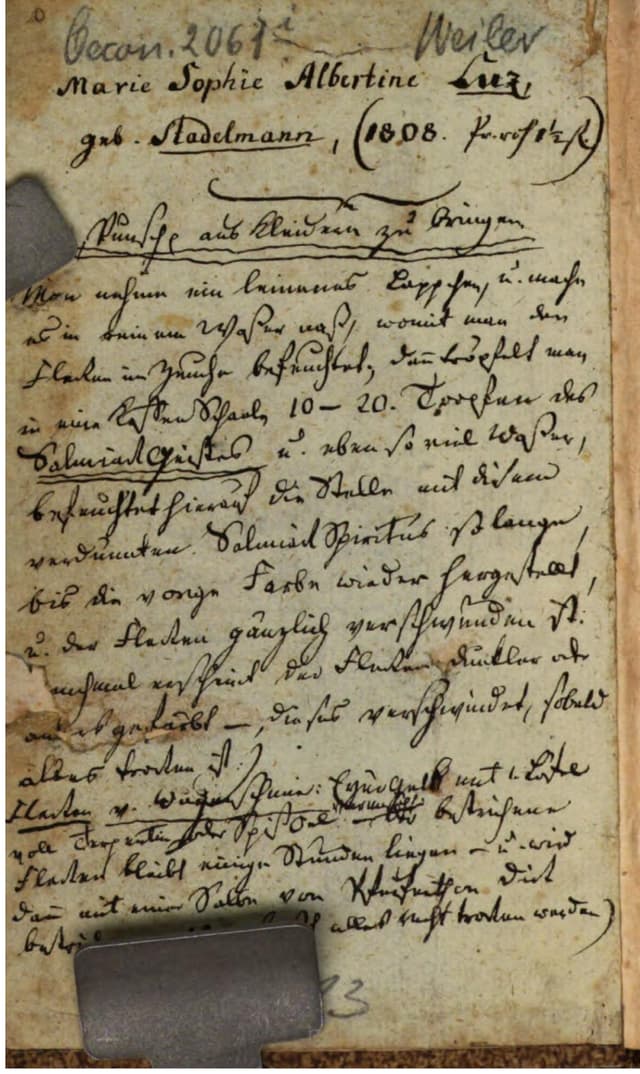 Oecon. 2067 i Weiler
Marie Sophie Albertine Luz,
geb. Stadelmann, (1808.
Punsch aus Kleidern zu bringen
Man nehme ein leinenes Läppchen, u. mache
es in reinem Waßer naß, womit man den
Flecken im Zeuche befeuchtet, dann tröpfelt man
in eine Kaffeeschaale 10 – 20. Tropfen des
Salmiack Geistes u. eben so viel Waßer,
befeuchtet hierauf die Stelle mit diesem
verdünnten Salmiack Spiritus so lange,
bis die vorige Farbe wieder hergestellt,
u. der Flecken gänzlich verschwunden ist:
erscheint der Flecken dunkler oder
gefärbt –, dieses verschwindet, sobald
alles trocken ist:)
Flecken v. Wagenschmier: Eyergelb mit 1. Löfel
voll Terpentin oder bestrichene
Flecken bleibt einige Stunden liegen – u. wird
dann mit einer Salbe von dick
alles recht trocken werden)